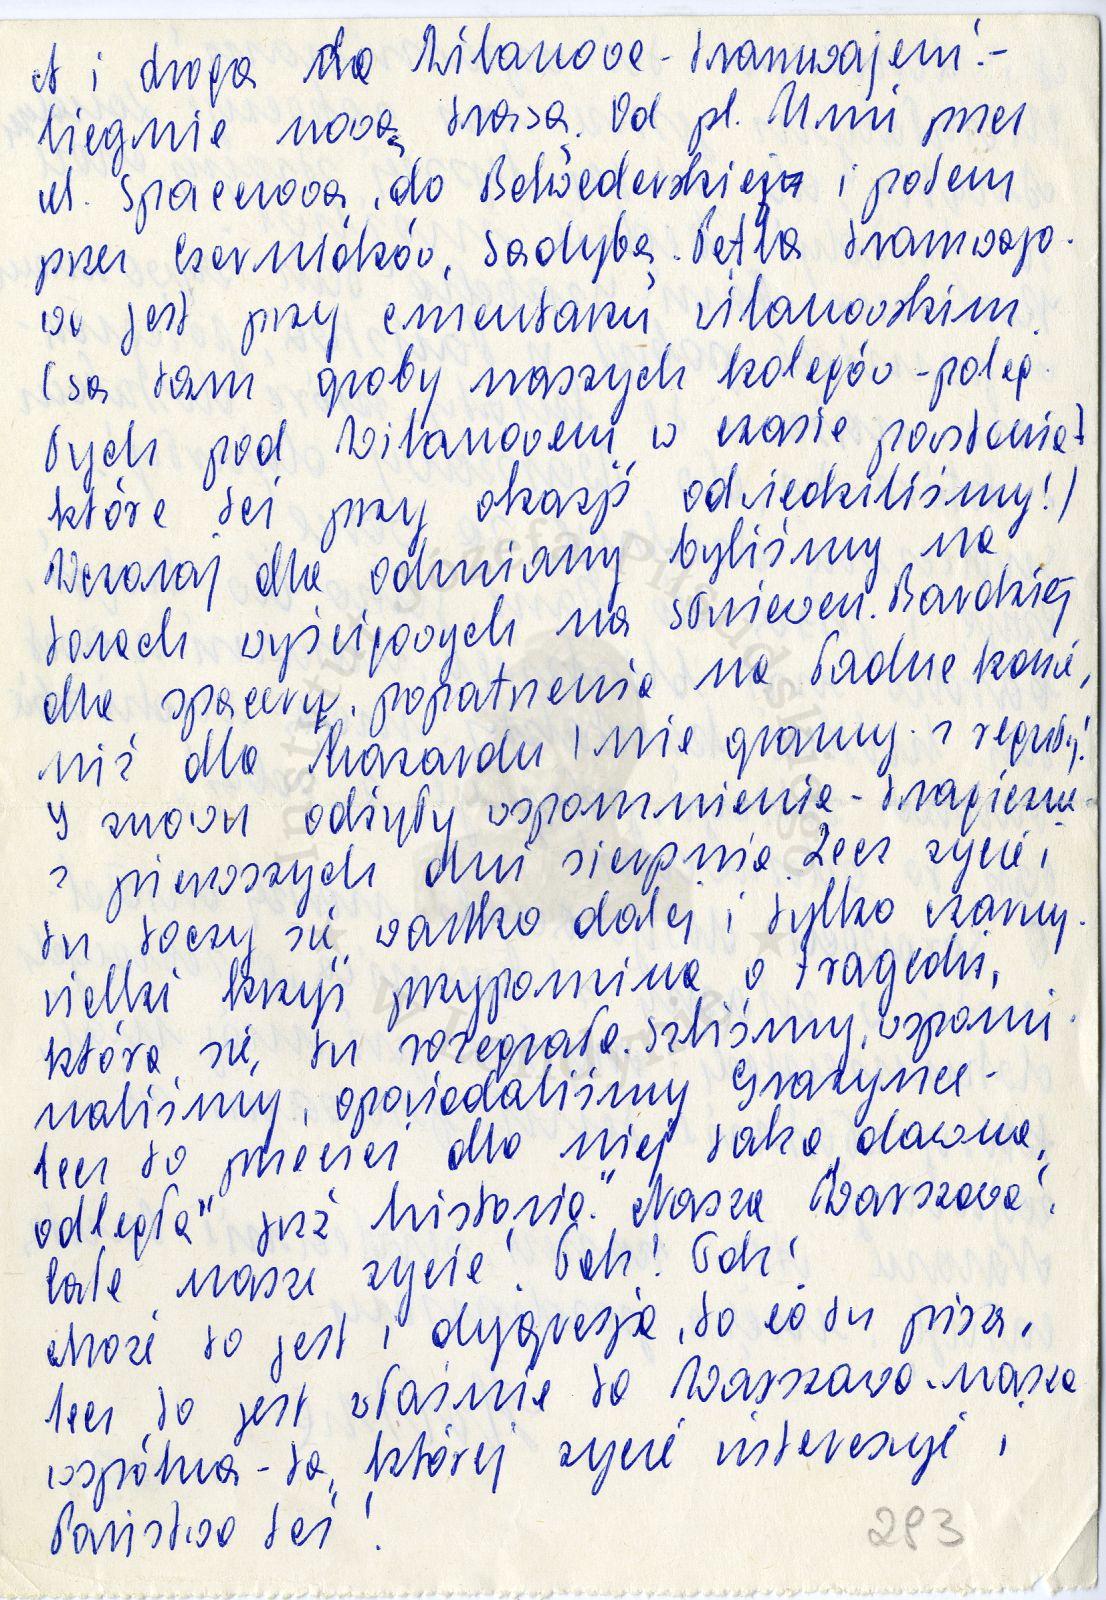 A i droga do Wilanowa - tramwajem! -
biegnie nową trasą. Od pl. Unii przez
ul. Spacerową, do Belwederskiej i potem
przez Czerniaków, Sadybę. Pętla tramwajo-
wa jest przy cmentarzu wilanowskim.
(są tam groby naszych kolegów - poleg-
łych pod Wilanowem w czasie powstania
które też przy okazji odwiedziliśmy!)
Wczoraj dla odmiany byliśmy na
torach wyścigowych na Służewcu. Bardziej
dla spaceru, popatrzenia na ładne konie,
niż dla hazardu (nie gramy z reguły!
I znowu odżyły wspomnienia - tragiczne -
z pierwszych dni sierpnia. Lecz życie i
tu toczy się wartko dalej i tylko czarny -
wielki krzyż przypomina o tragedii,
która się tu rozegrała. Szliśmy, wspomi-
naliśmy, opowiadaliśmy Grażynce -
lecz to przecież dla niej taka dawna,
odległa" już historia." Nasza Warszawa!
Całe nasze życie! Tak! Tak!
Może to jest i dygresja, to co tu piszę,
lecz to jest właśnie ta Warszawa - nasza
wspólna - ta, której życie interesuje i
Państwa też!
293
Instytut Józefa Piłsudskiego
w Londynie